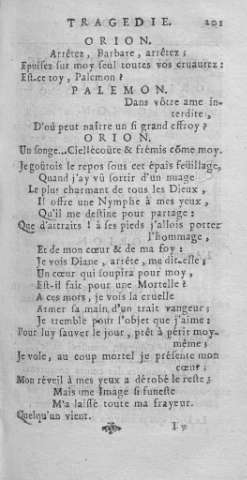 TRAGEDIE. 201
ORION.
Arrêtez, Barbare, arrêtez ;
Epuisez sur moy seul toutes vos cruautez :
Est-ce toy, Palemon ?
PALEMON.
Dans vôtre ame in-
terdite,
D'où peut naître un si grand effroy ?
ORION.
Un songe... Ciel! écoute & frémis cõme moy.
Je goûtois le repos sous cet épais feuillage,
Quand j'ay vû sortir d'un nuage
Le plus charmant de tous les Dieux,
Il offre une Nymphe à mes yeux,
Qu'il me destine pour partage :
Que d'attraits ! à ses pieds j'allois porter
l'hommage,
Et de mon cœur & de ma foy :
Je vois Diane, arrête, me dit-elle ;
Un cœur qui soupira pour moy,
Est-il fait pour une Mortelle ?
A ces mots, je vois la cruelle
Armer sa main d'un trait vangeur ;
Je tremble pour l'objet que j'aime :
Pour luy sauver le jour, prêt à périt moy-
même ;
Je vole, au coup mortel je présente mon
cœur ;
Mon réveil à mes yeux a dérobé le reste ;
Mais une Image si funeste
M'a laissé toute ma frayeur.
Quelqu'un vient.
I v